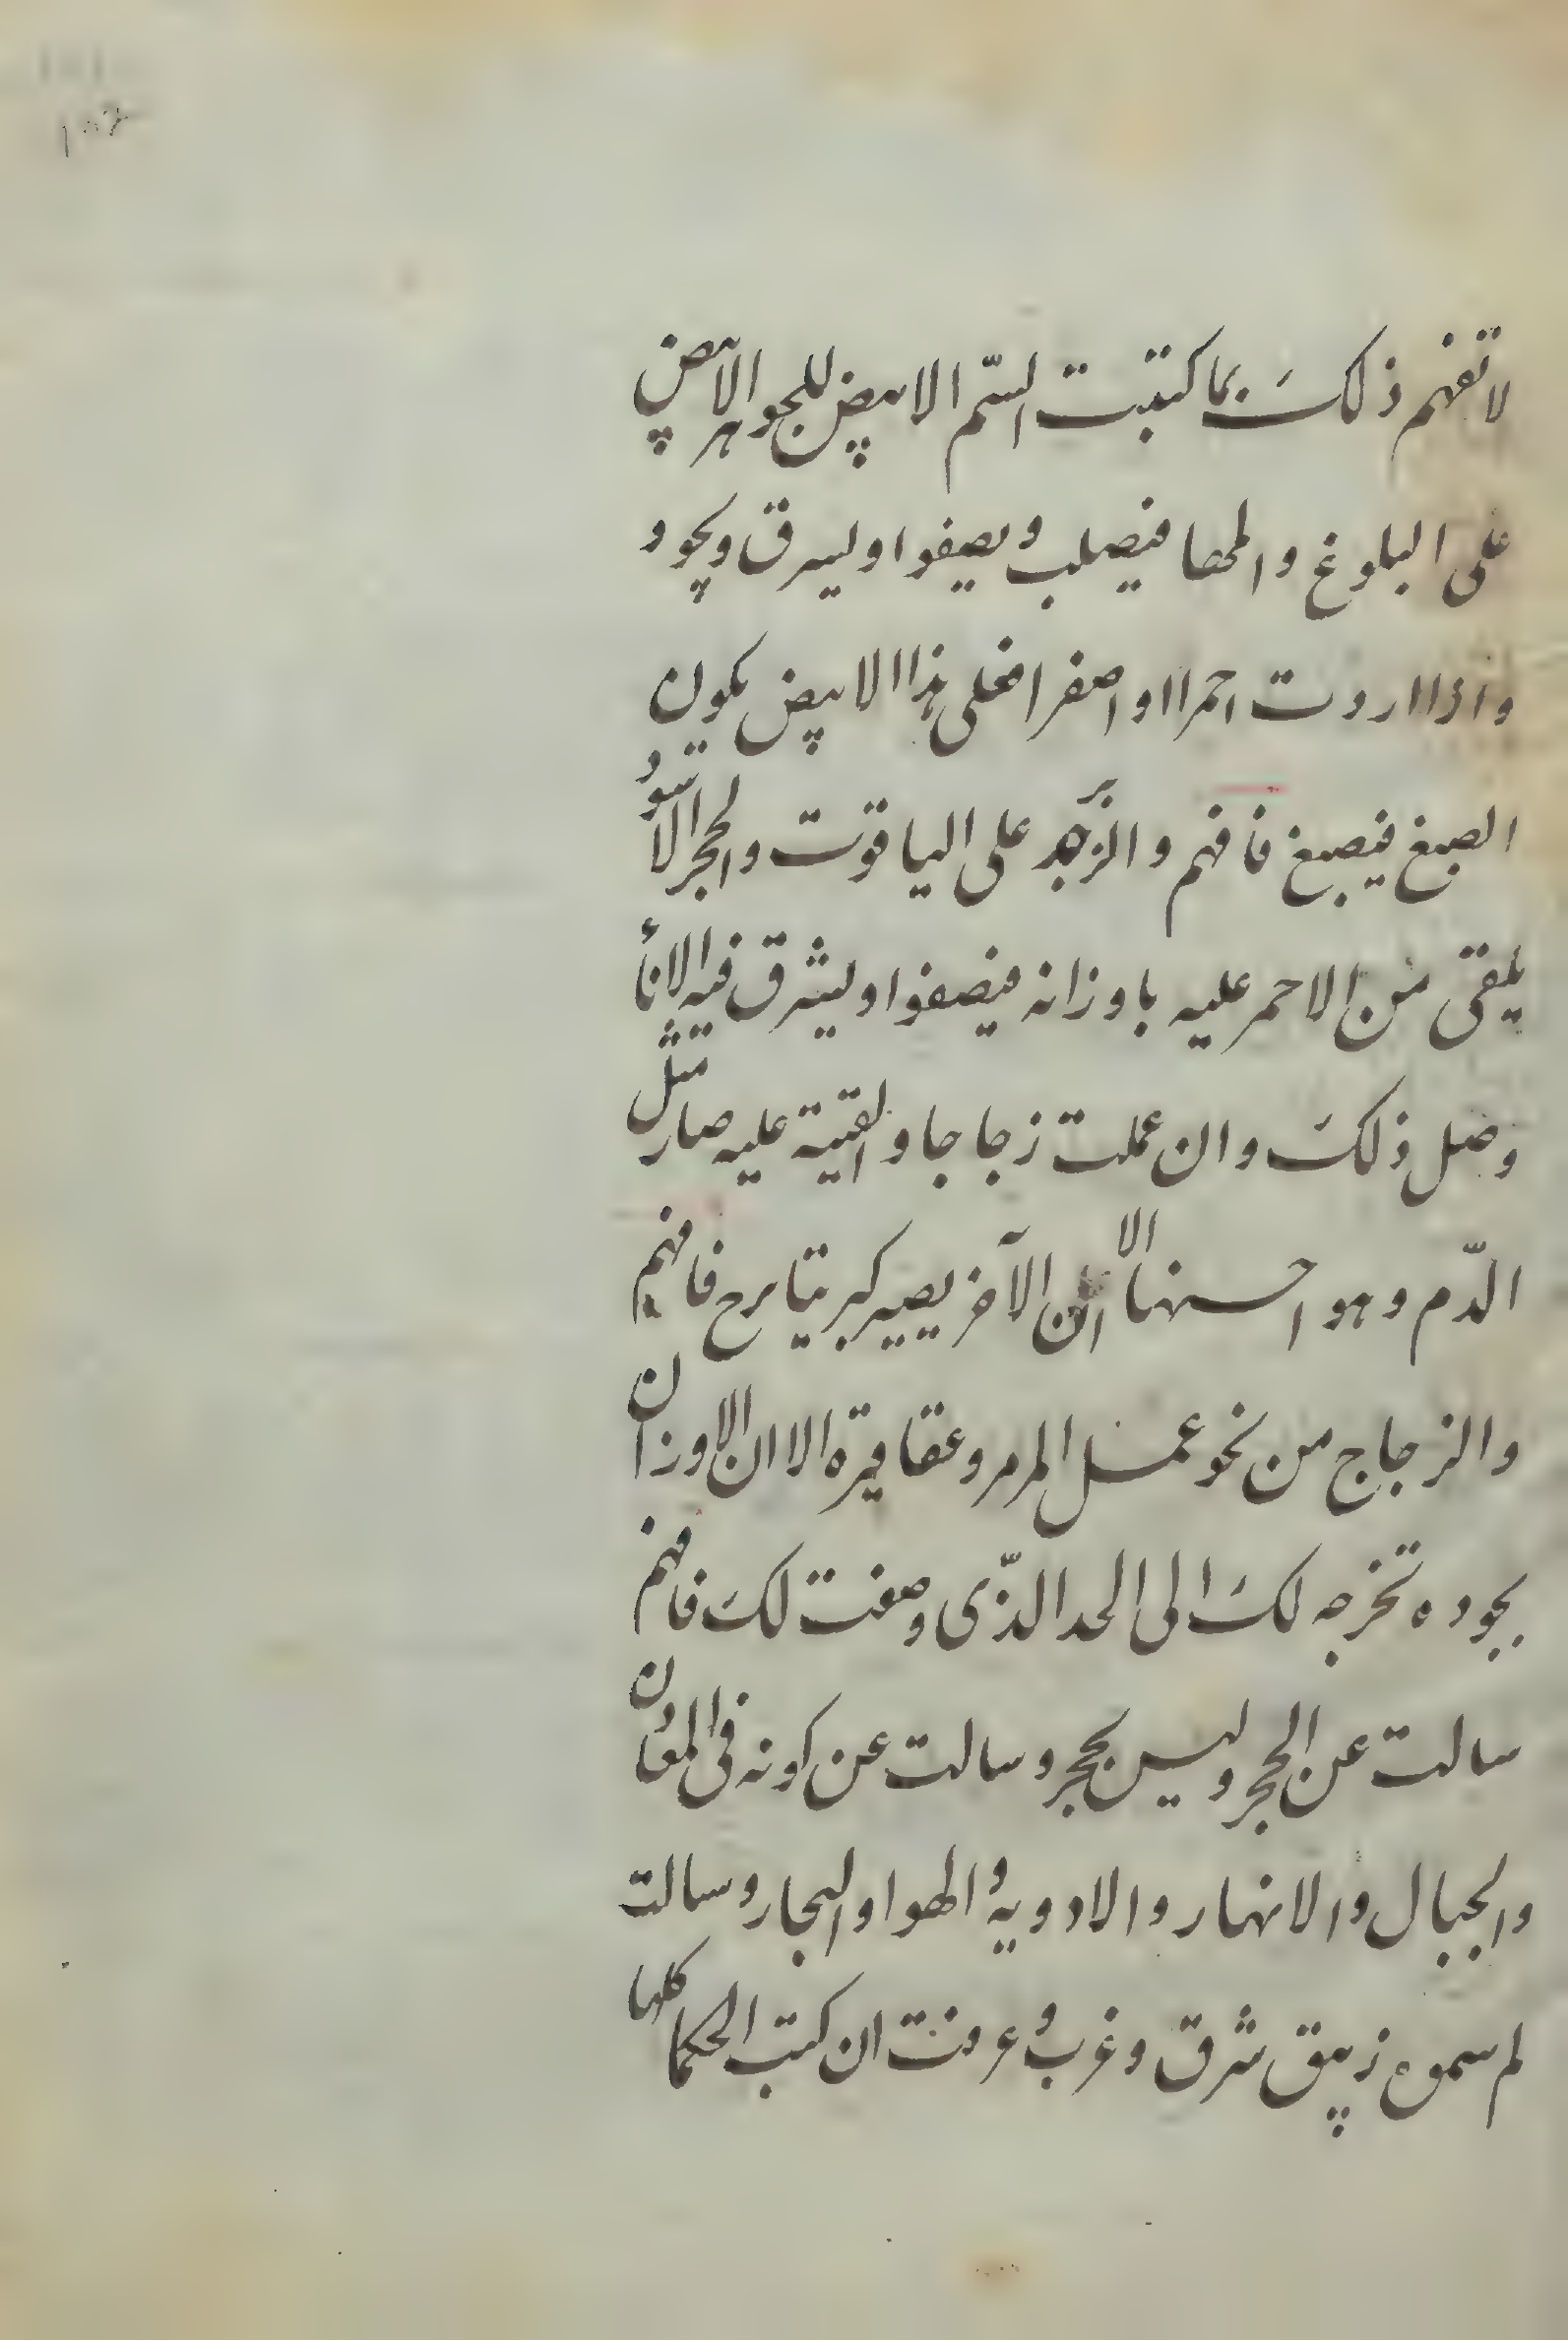 لا تفهم ذلك بما كتبت السّم الابيض للجوهر الابيض
على البلوغ والمها فيصلب ويصفوا وليسرق ويجود
واذا اردت احمرا او اصفرا فعلى هذا الابيض يكون
الصبغ فيصبغ فافهم والزبرجد على الياقوت والحجر الاسود
يلقى من الاحمر عليه باوزانه فيصفوا وليشرق فيه الانأ
وضل ذلك وان عملت زجاجا والقيته عليه صار مثل
الدّم وهو احسنها الا ان الآخر يصير كبريتا فافهم
والزجاج من نحو عمل المرمر وعقاقيره الا ان الاوزان
بجوده تخرجه لك الى الحد الذّى وصفت لك فافهم
سالت عن الحجر وليس بحجر وسالت عن كونه فى المعادن
والجبال والانهار والادوية والهوا والبحار وسالت
لم سموه زيبق شرق وغرب وعرفت ان كتب الحكما كلها